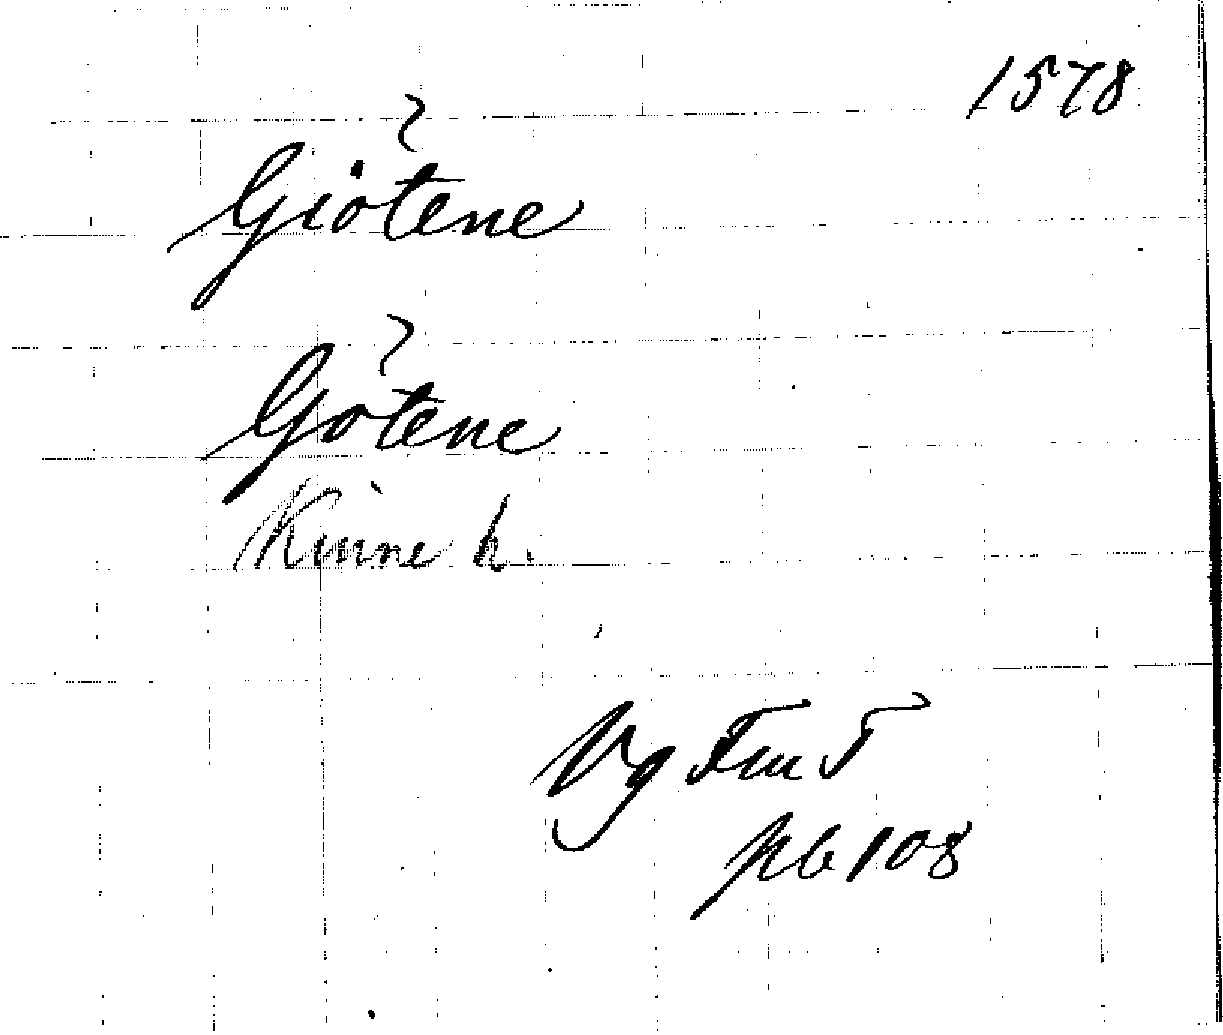 1578
Giötene
Götene
Kinne h.
Vg
108